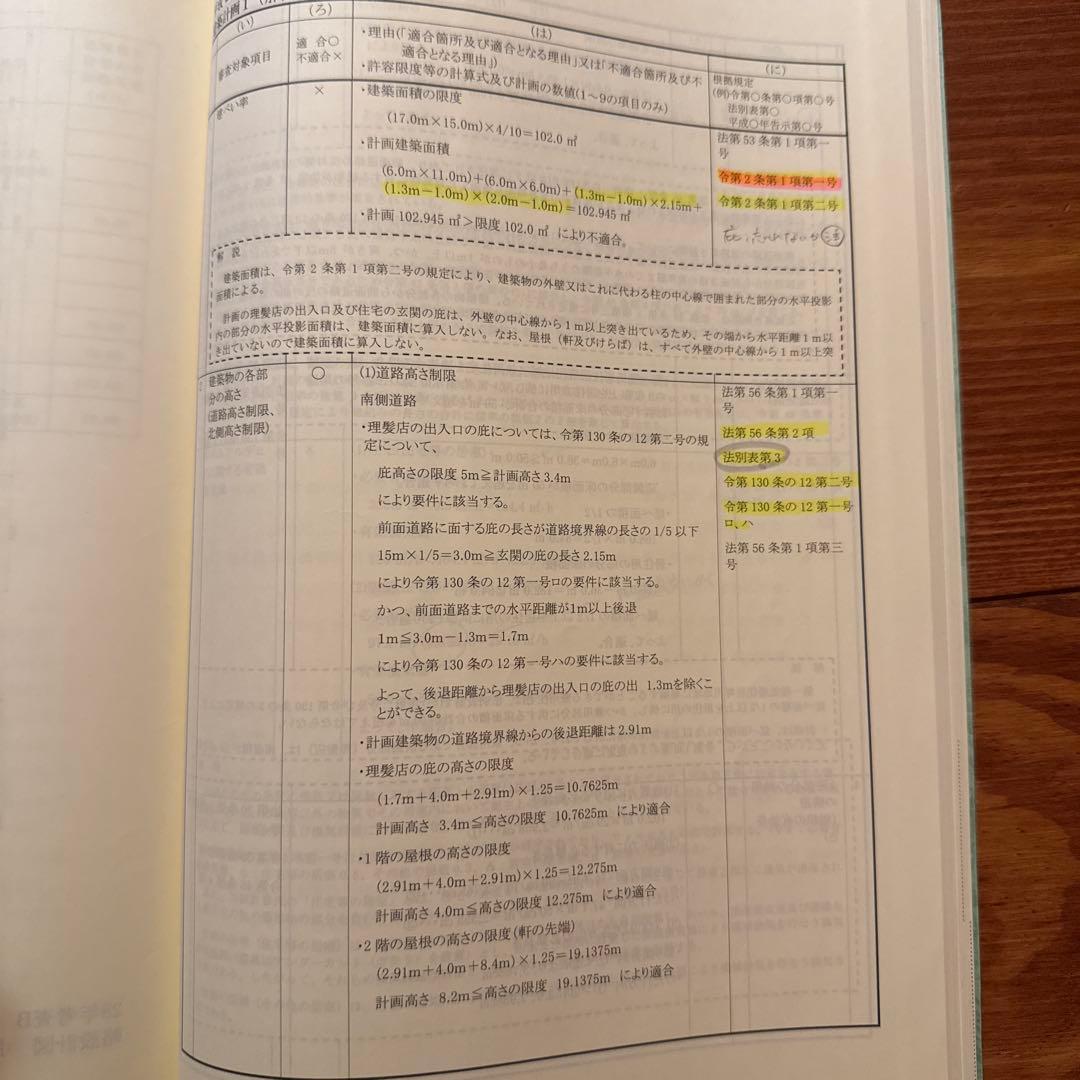 築計画1
(い)
(ろ)
(は)
(に)
審査対象項目
適 合○
不適合×
・理由(「適合箇所及び適合となる理由」又は「不適合箇所及び不
適合となる理由」)
・許容限度等の計算式及び計画の数値(1〜9の項目のみ)
根拠規定
(例)令第○条第○項第○号
法別表第○
平成○年告示第○号
建ぺい率
×
・建築面積の限度
(17.0m×15.0m)×4/10=102.0 ㎡
・計画建築面積
(6.0m×11.0m)+(6.0m×6.0m)+(1.3m-1.0m)×2.15m+
(1.3m-1.0m)×(2.0m-1.0m)=102.945 ㎡
・計画 102.945 ㎡>限度 102.0 ㎡ により不適合。
法第 53 条第 1 項第一
号
令第 2 条第 1 項第一号
令第 2 条第 1 項第二号
解 説
建築面積は、令第 2 条第 1 項第二号の規定により、建築物の外壁又はこれに代わる柱の中心線で囲まれた部分の水平投影
面積による。
計画の理髪店の出入口及び住宅の玄関の庇は、外壁の中心線から 1 m以上突き出ているため、その端から水平距離 1 m以
内の部分の水平投影面積は、建築面積に算入しない。なお、屋根(軒及びけらば)は、すべて外壁の中心線から 1 m以上突
き出ていないので建築面積に算入しない。
建築物の各部
分の高さ
(道路高さ制限、
北側高さ制限)
○
(1)道路高さ制限
南側道路
・理髪店の出入口の庇については、令第 130 条の 12 第二号の規
定について、
庇高さの限度 5m≧計画高さ 3.4m
により要件に該当する。
前面道路に面する庇の長さが道路境界線の長さの 1/5 以下
15m×1/5=3.0m≧玄関の庇の長さ 2.15m
により令第 130 条の 12 第一号ロの要件に該当する。
かつ、前面道路までの水平距離が1m以上後退
1m≦3.0m-1.3m=1.7m
により令第 130 条の 12 第一号ハの要件に該当する。
よって、後退距離から理髪店の出入口の庇の出 1.3mを除くこ
とができる。
・計画建築物の道路境界線からの後退距離は 2.91m
・理髪店の庇の高さの限度
(1.7m+4.0m+2.91m)×1.25=10.7625m
計画高さ 3.4m≦高さの限度 10.7625m により適合
・1 階の屋根の高さの限度
(2.91m+4.0m+2.91m)×1.25=12.275m
計画高さ 4.0m≦高さの限度 12.275m により適合
・2 階の屋根の高さの限度(軒の先端)
(2.91m+4.0m+8.4m)×1.25=19.1375m
計画高さ 8.2m≦高さの限度 19.1375m により適合
法第 56 条第 1 項第一
号
法第 56 条第 2 項
法別表第 3
令第 130 条の 12 第二号
令第 130 条の 12 第一号
ロ、ハ
法第 56 条第 1 項第三
号